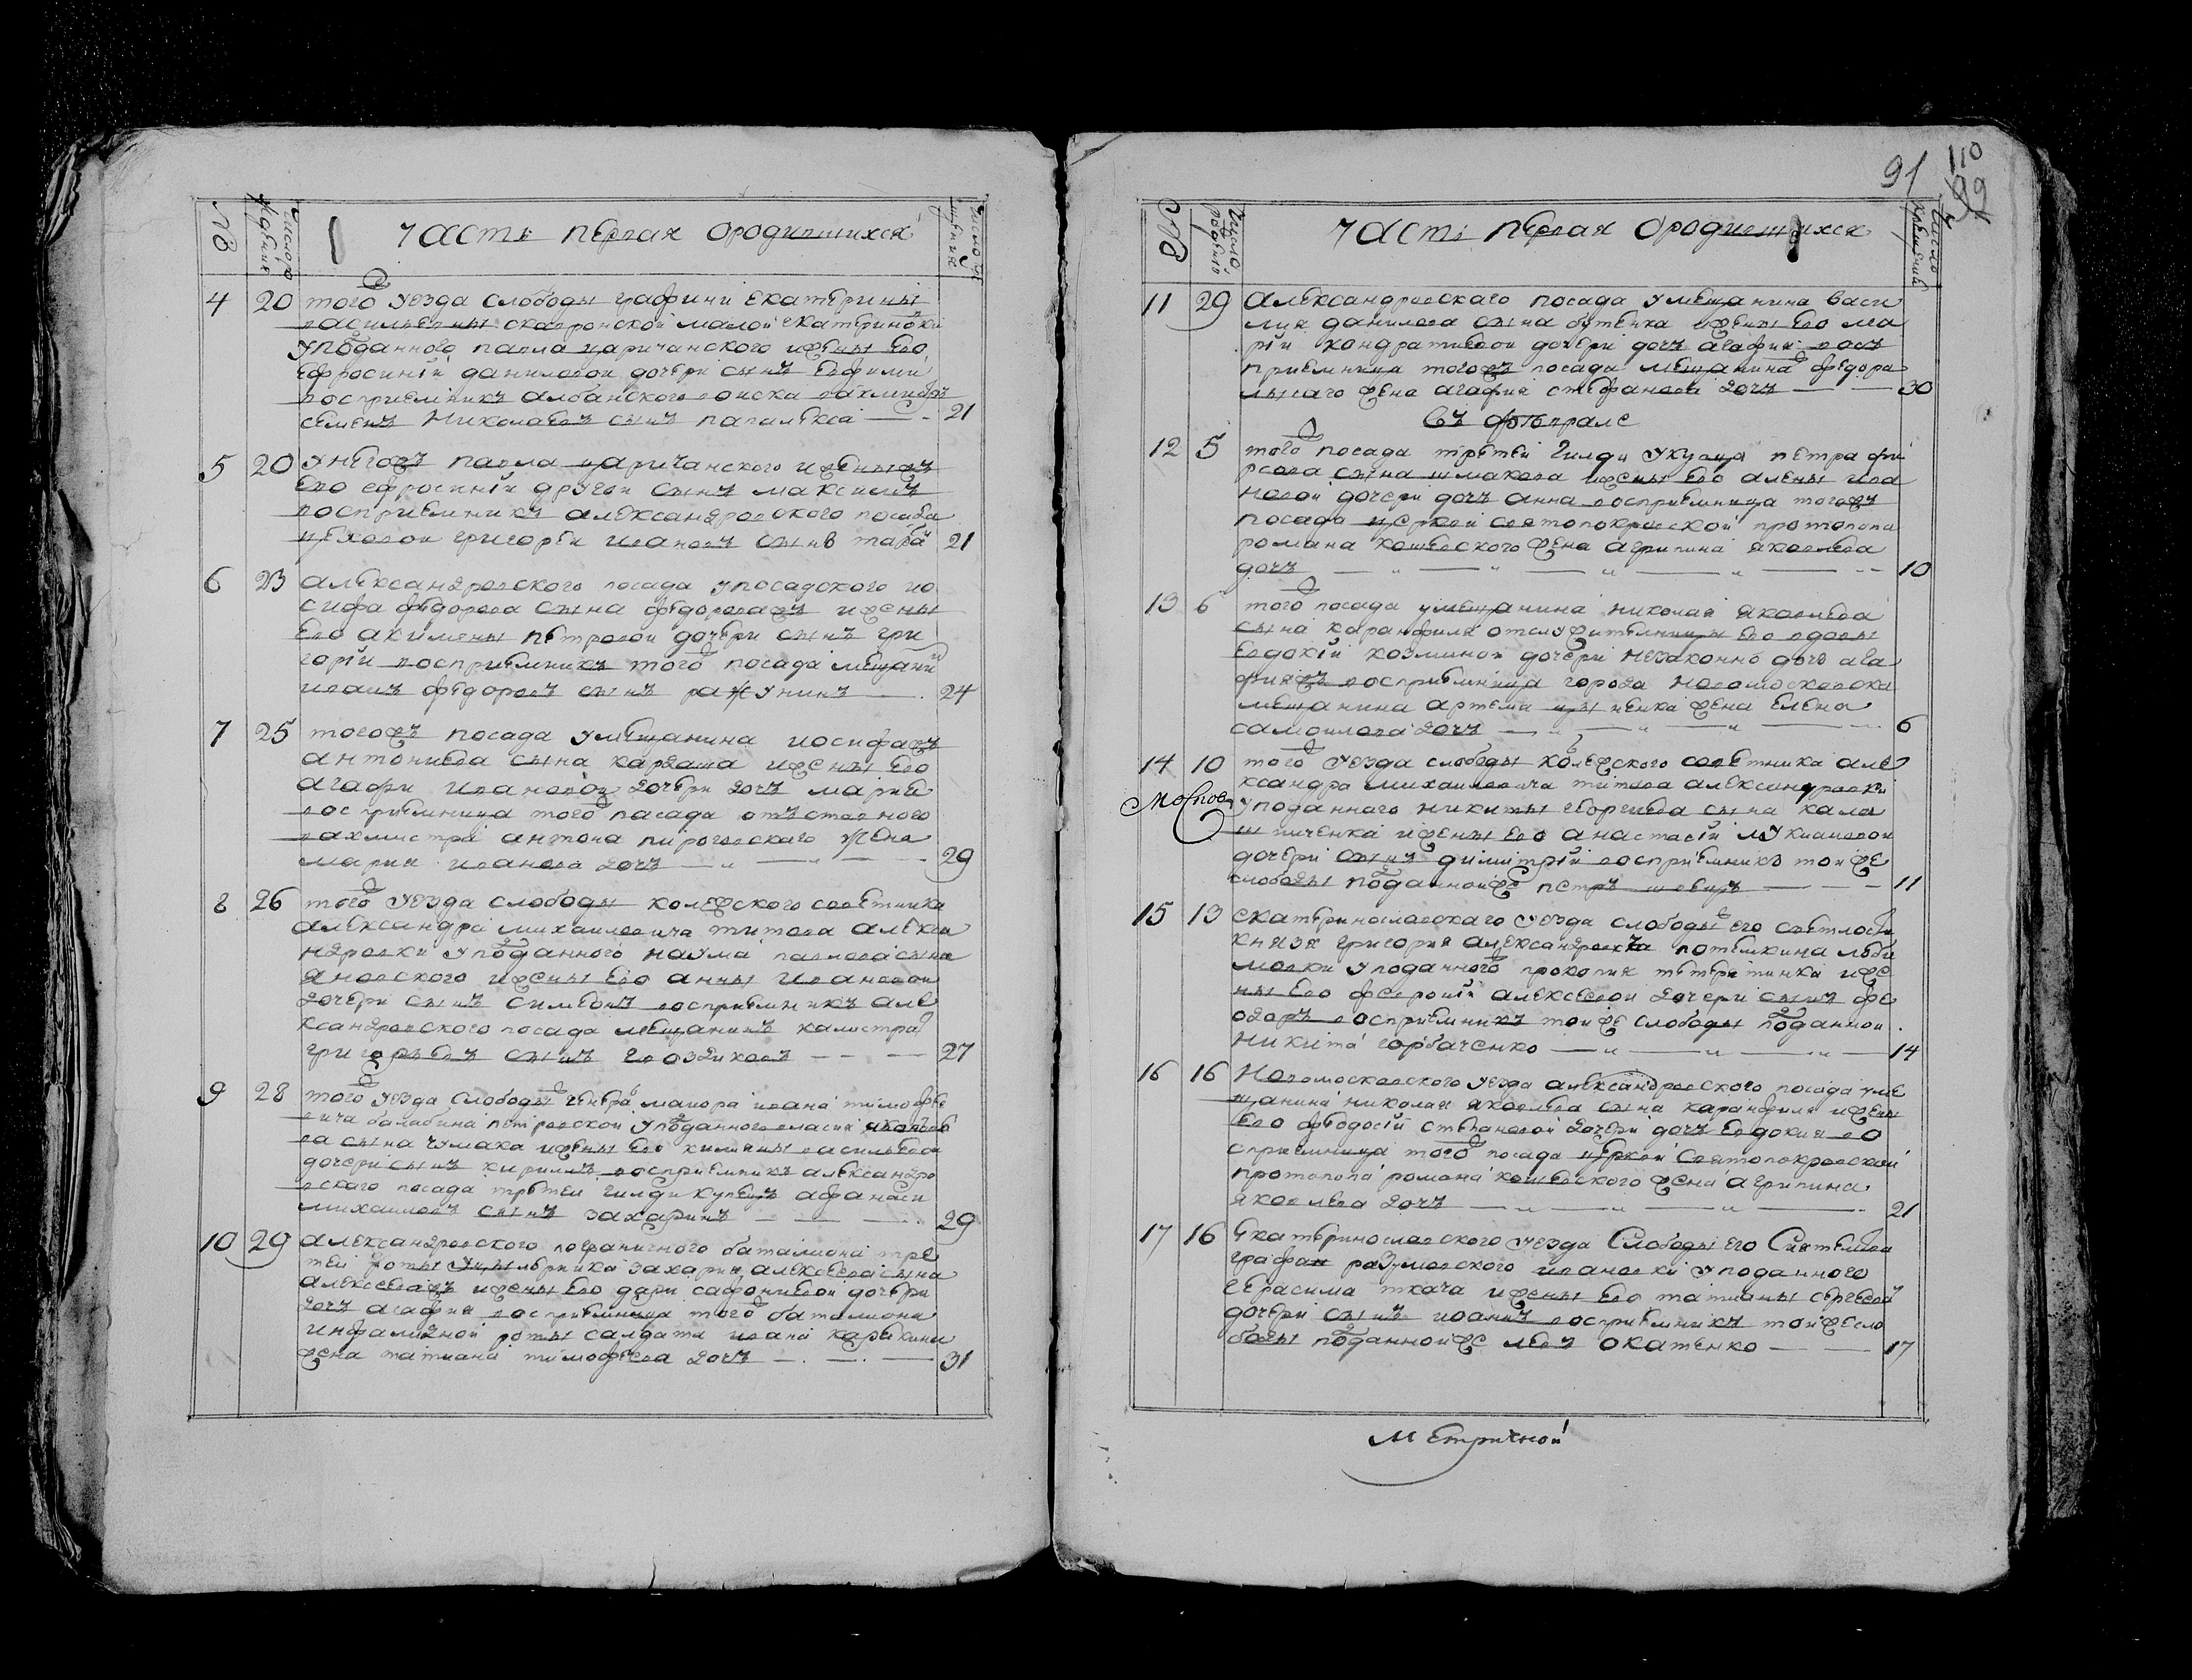 №
число рождения
часть первая ородившихся
число крещения
4 20 того уезда слободы графини екатерины
васильевны скавронской малой екатериновки
уподанного павла царичанского ижены ево
ефросинїи даниловой дочери сынъ ефимий
восприемникъ албанского войска вахмистръ
семенъ николаевъ сынъ папалекса 21
5 20 унегожъ павла царичанского иженыжъ
ево ефросинїи другой сынъ максимъ
восприемникъ александровского посада
цеховой григорей ивановъ сынъ 21
6 23 александровского посада упосадского ио
сифа федорова сына федороважъ ижены
ево акилины петровой дочери сынъ гри
горїй восприемникъ того посада мещанин
иванъ федоровъ сынъ ражунинъ 24
7 25 тогожъ посада умещанина иосифажъ
антониева сына кардаша ижены ево
агафи ивановой дочери дочъ мария
восприемница того посада отъставного
вахмистра антона пироговскаго жена
мария иванова дочъ 29
8 26 того уезда слободы колежского советника
александра михаиловича титова алекса
ндровки уподанного наума павлова сына
яновского ижены ево анны ивановой
дочери сынъ симеонъ восприемникъ але
ксандровского посада мещанинъ калистрат
григоревъ сынъ гвоздиковъ 27
9 28 того уезда слободы генерал маиора ивана тимофее
вича балабина петровской уподанного власия
ва сына чумака ижены ево килины василевой
дочери сынъ кирилъ восприемникъ александро
вского посада третей гилди купецъ афанаси
михаиловъ сынъ захаринъ 29
10 29 александровского пограничного баталиона тре
тей роты захария алексеева сына
алексееважъ ижены ево дари сафониевой дочери
дочъ агафия восприемница того баталиона
инфалидной роты салдата ивана карякина
жена татиана тимофеева дочъ 31
91 110
99
№
число рождения
часть первая ородившихся
число крещения
11 29 александровскаго посада умещанина васи
лия данилова сына бутенка ижены ево ма
рїи кондратиевой дочери дочъ агафия вос
приемница тогожъ посада мещанина федора
лысаго жена агафия стефанова дочъ 30
въ февралѣ
12 5 того посада третей гилди укупца петра фи
рсова сына шмакова ижены ево алены ива
новой дочери дочъ анна восприемница тогожъ
посада церкви святопокровской протопопа
романа кошевского жена агрипина яковлева
дочъ 10
13 6 того посада умещанина николая яковлева
сына каранфиля отслужителницы ево вдовы
евдокїи козминой дочери незаконно дочъ ага
фияжъ восприемница города новомосковска
мещанина артема жена елена
самоилова дочъ 6
14 10 того уезда слободы колежского советника але
ксандра михаиловича титова александровки
уподаннаго никиты георгиева сына кала
шниченка ижены ево анастасїи лукиановой
дочери сынъ димитрїй восприемникъ тойже
слободы поданнойже петръ шевиръ 11
15 13 екатеринославскаго уезда слободы его светлости
князя григория александровича потемкина люби
мовки уподанного прокопия тетерятинка иже
ны ево февронїи алексеевой дочери сынъ фе
одоръ восприемникъ тойже слободы поданной
никита горбаченко 14
16 16 новомосковского уезда александровского посада уме
щанина николая яковлева сына каранфиля ижены
ево феодосїй степановой дочери дочъ евдокия во
сприемница того посада церкви святопокровской
протопопа романа кошевского жена агрипина
яковлева дочъ 21
17 16 екатеринославского уезда слободы его сиятелства
графа разумовского ивановки уподанного
герасима ткача ижены ево татианы сергеевой
дочери сынъ иоанъ восприемникъ тойжесло
боды поданнойже левъ окатенко 17
метричной